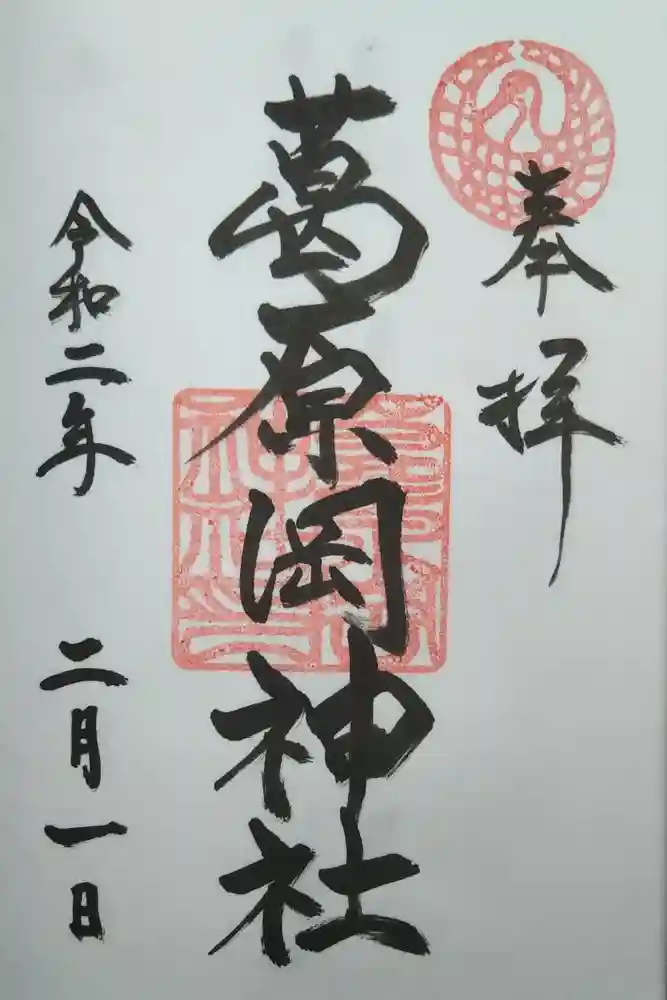 奉拝
葛原岡神社
令和二年 二月一日